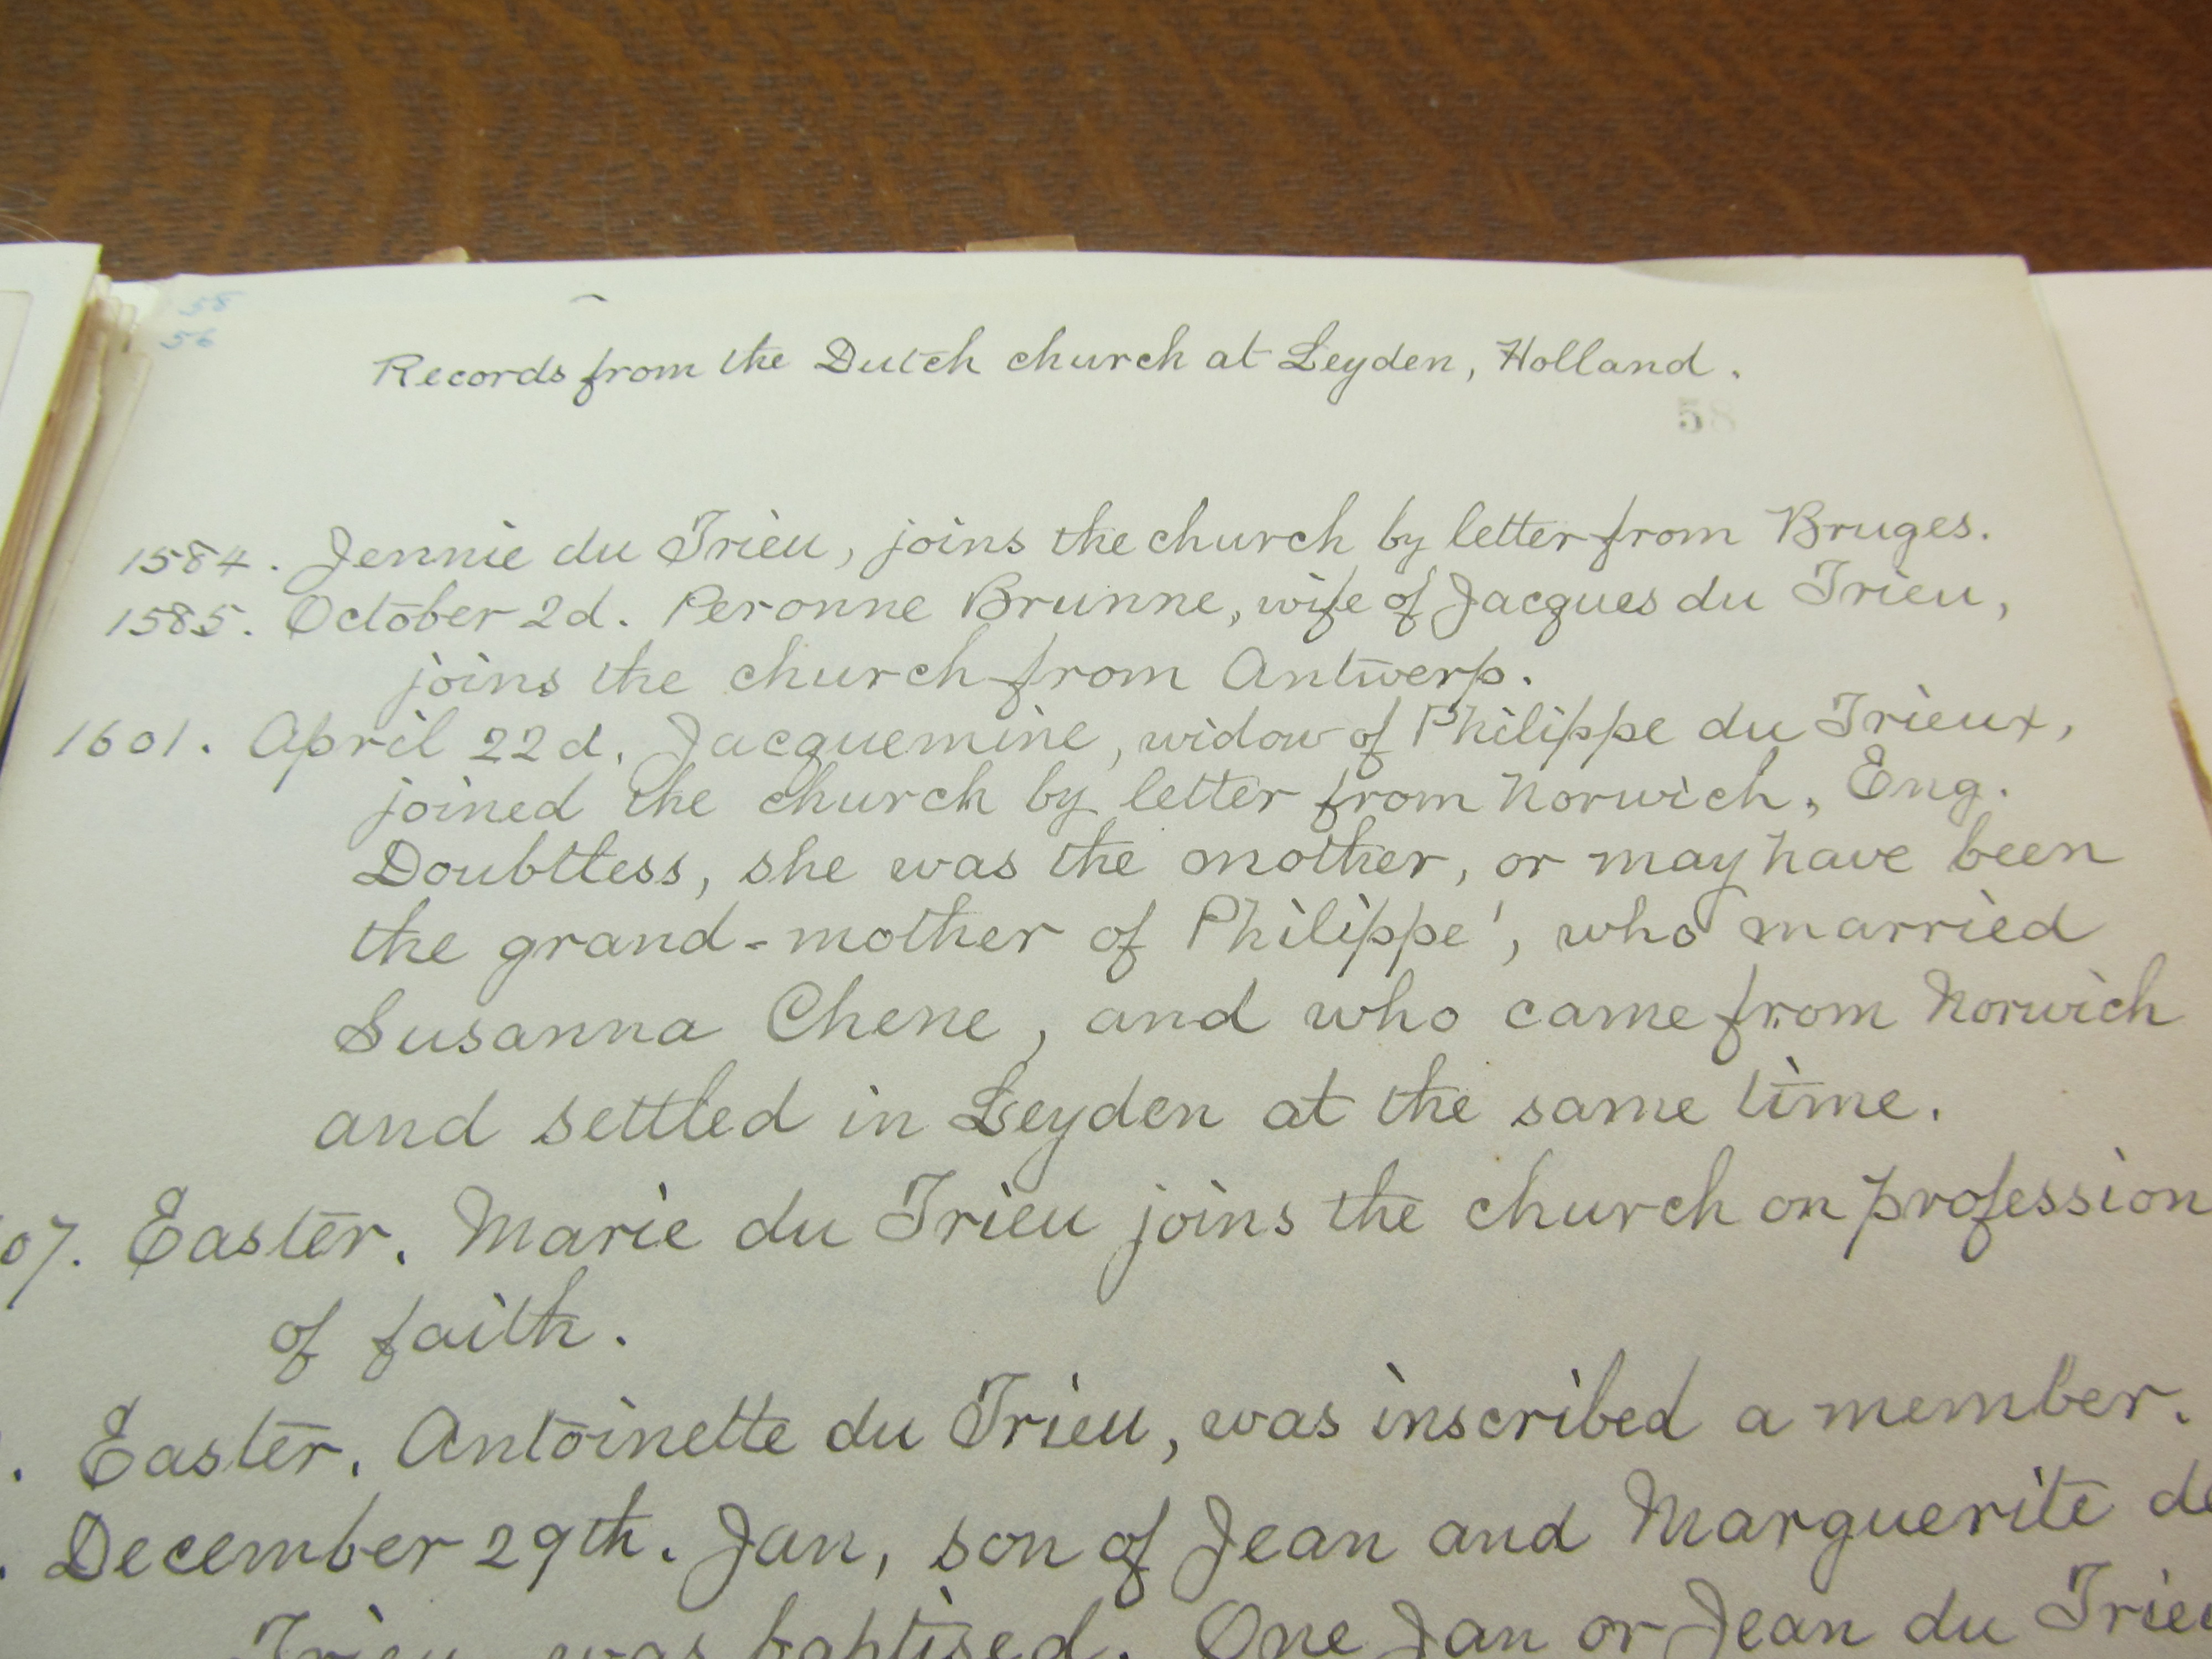 58
56
Records from the Dutch church at Leyden, Holland.
58
1584. Jennie du Trieu, joins the church by letter from Bruges.
1585. October 2d. Peronne Brunne, wife of Jacques du Trieu,
joins the church from Antwerp.
1601. April 22d. Jacquemine, widow of Philippe du Trieux,
joined the church by letter from Norwich, Eng.
Doubttess, she was the mother, or may have been
the grand-mother of Philippe', who married
Susanna Chene, and who came from Norwich
and settled in Leyden at the same time.
07. Easter. Marie du Trieu joins the church on profession
of faith.
. Easter. Antoinette du Trieu, was inscribed a member.
. December 29th. Jan, son of Jean and Marguerite de
Trieu was baptised. One Jan or Jean du Trieu